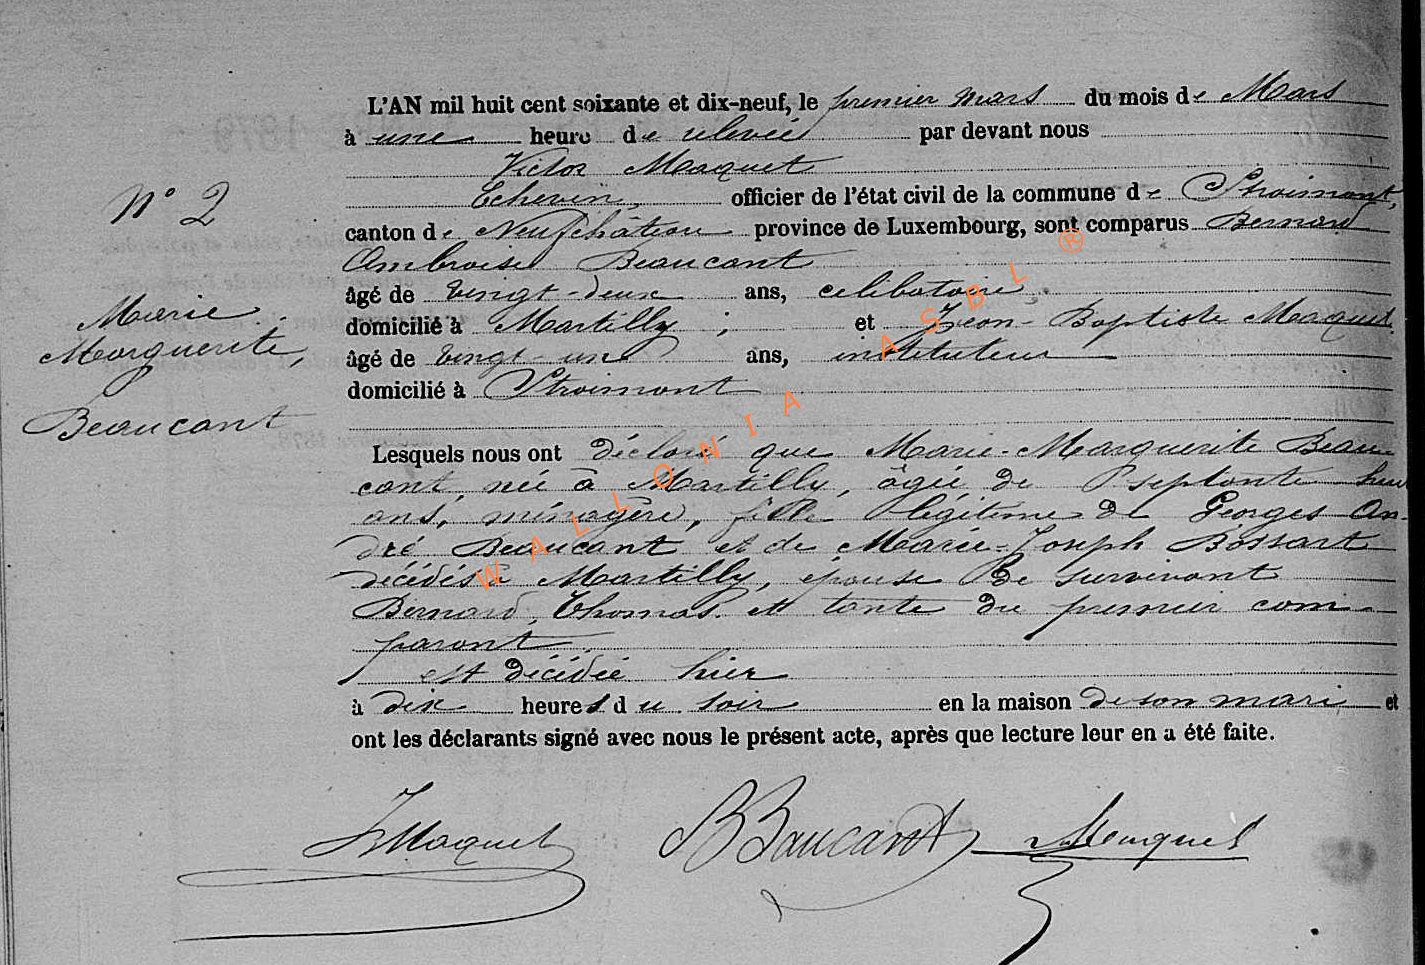 L'AN mil huit cent soixante et dix-neuf, le premier mars du mois de Mars
à une heure de relevée par devant nous
Victor Maquet
Echevin, officier de l'état civil de la commune de Straimont,
canton de Neufchâteau province de Luxembourg, sont comparus Bernard
Ambroise Beaucant
âgé de vingt-deux ans, celibataire
domicilié à Martilly ; et Jean-Baptiste Maquet
âgé de vingt-un ans, instituteur
domicilié à Straimont
N° 2
Marie
Marguerite,
Beaucant
Lesquels nous ont déclaré que Marie-Marguerite Beau-
cant, née à Martilly, âgée de septante huit
ans, ménagère, fille légitime de Georges An-
dré Beaucant et de Marie-Joseph Bossart
décédés à Martilly, épouse de survivant
Bernard, Thomas et tante du premier com-
parant.
est décédée hier
à dix heures du soir en la maison de son mari et
ont les déclarants signé avec nous le présent acte, après que lecture leur en a été faite.
Maquet BBaucant Maquet
WALLONIA ASBL ®